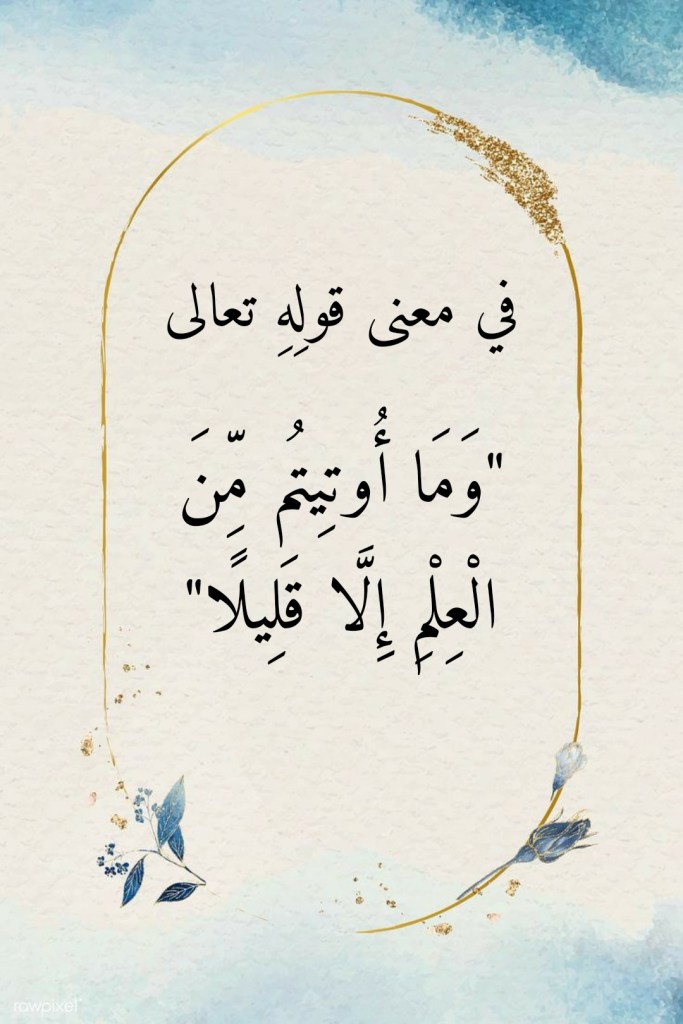 في معنى قولِهِ تعالى
"وَمَا أُوتِيتُم مِّنَ
الْعِلْمِ إِلَّا قَلِيلًا"
rawpixel